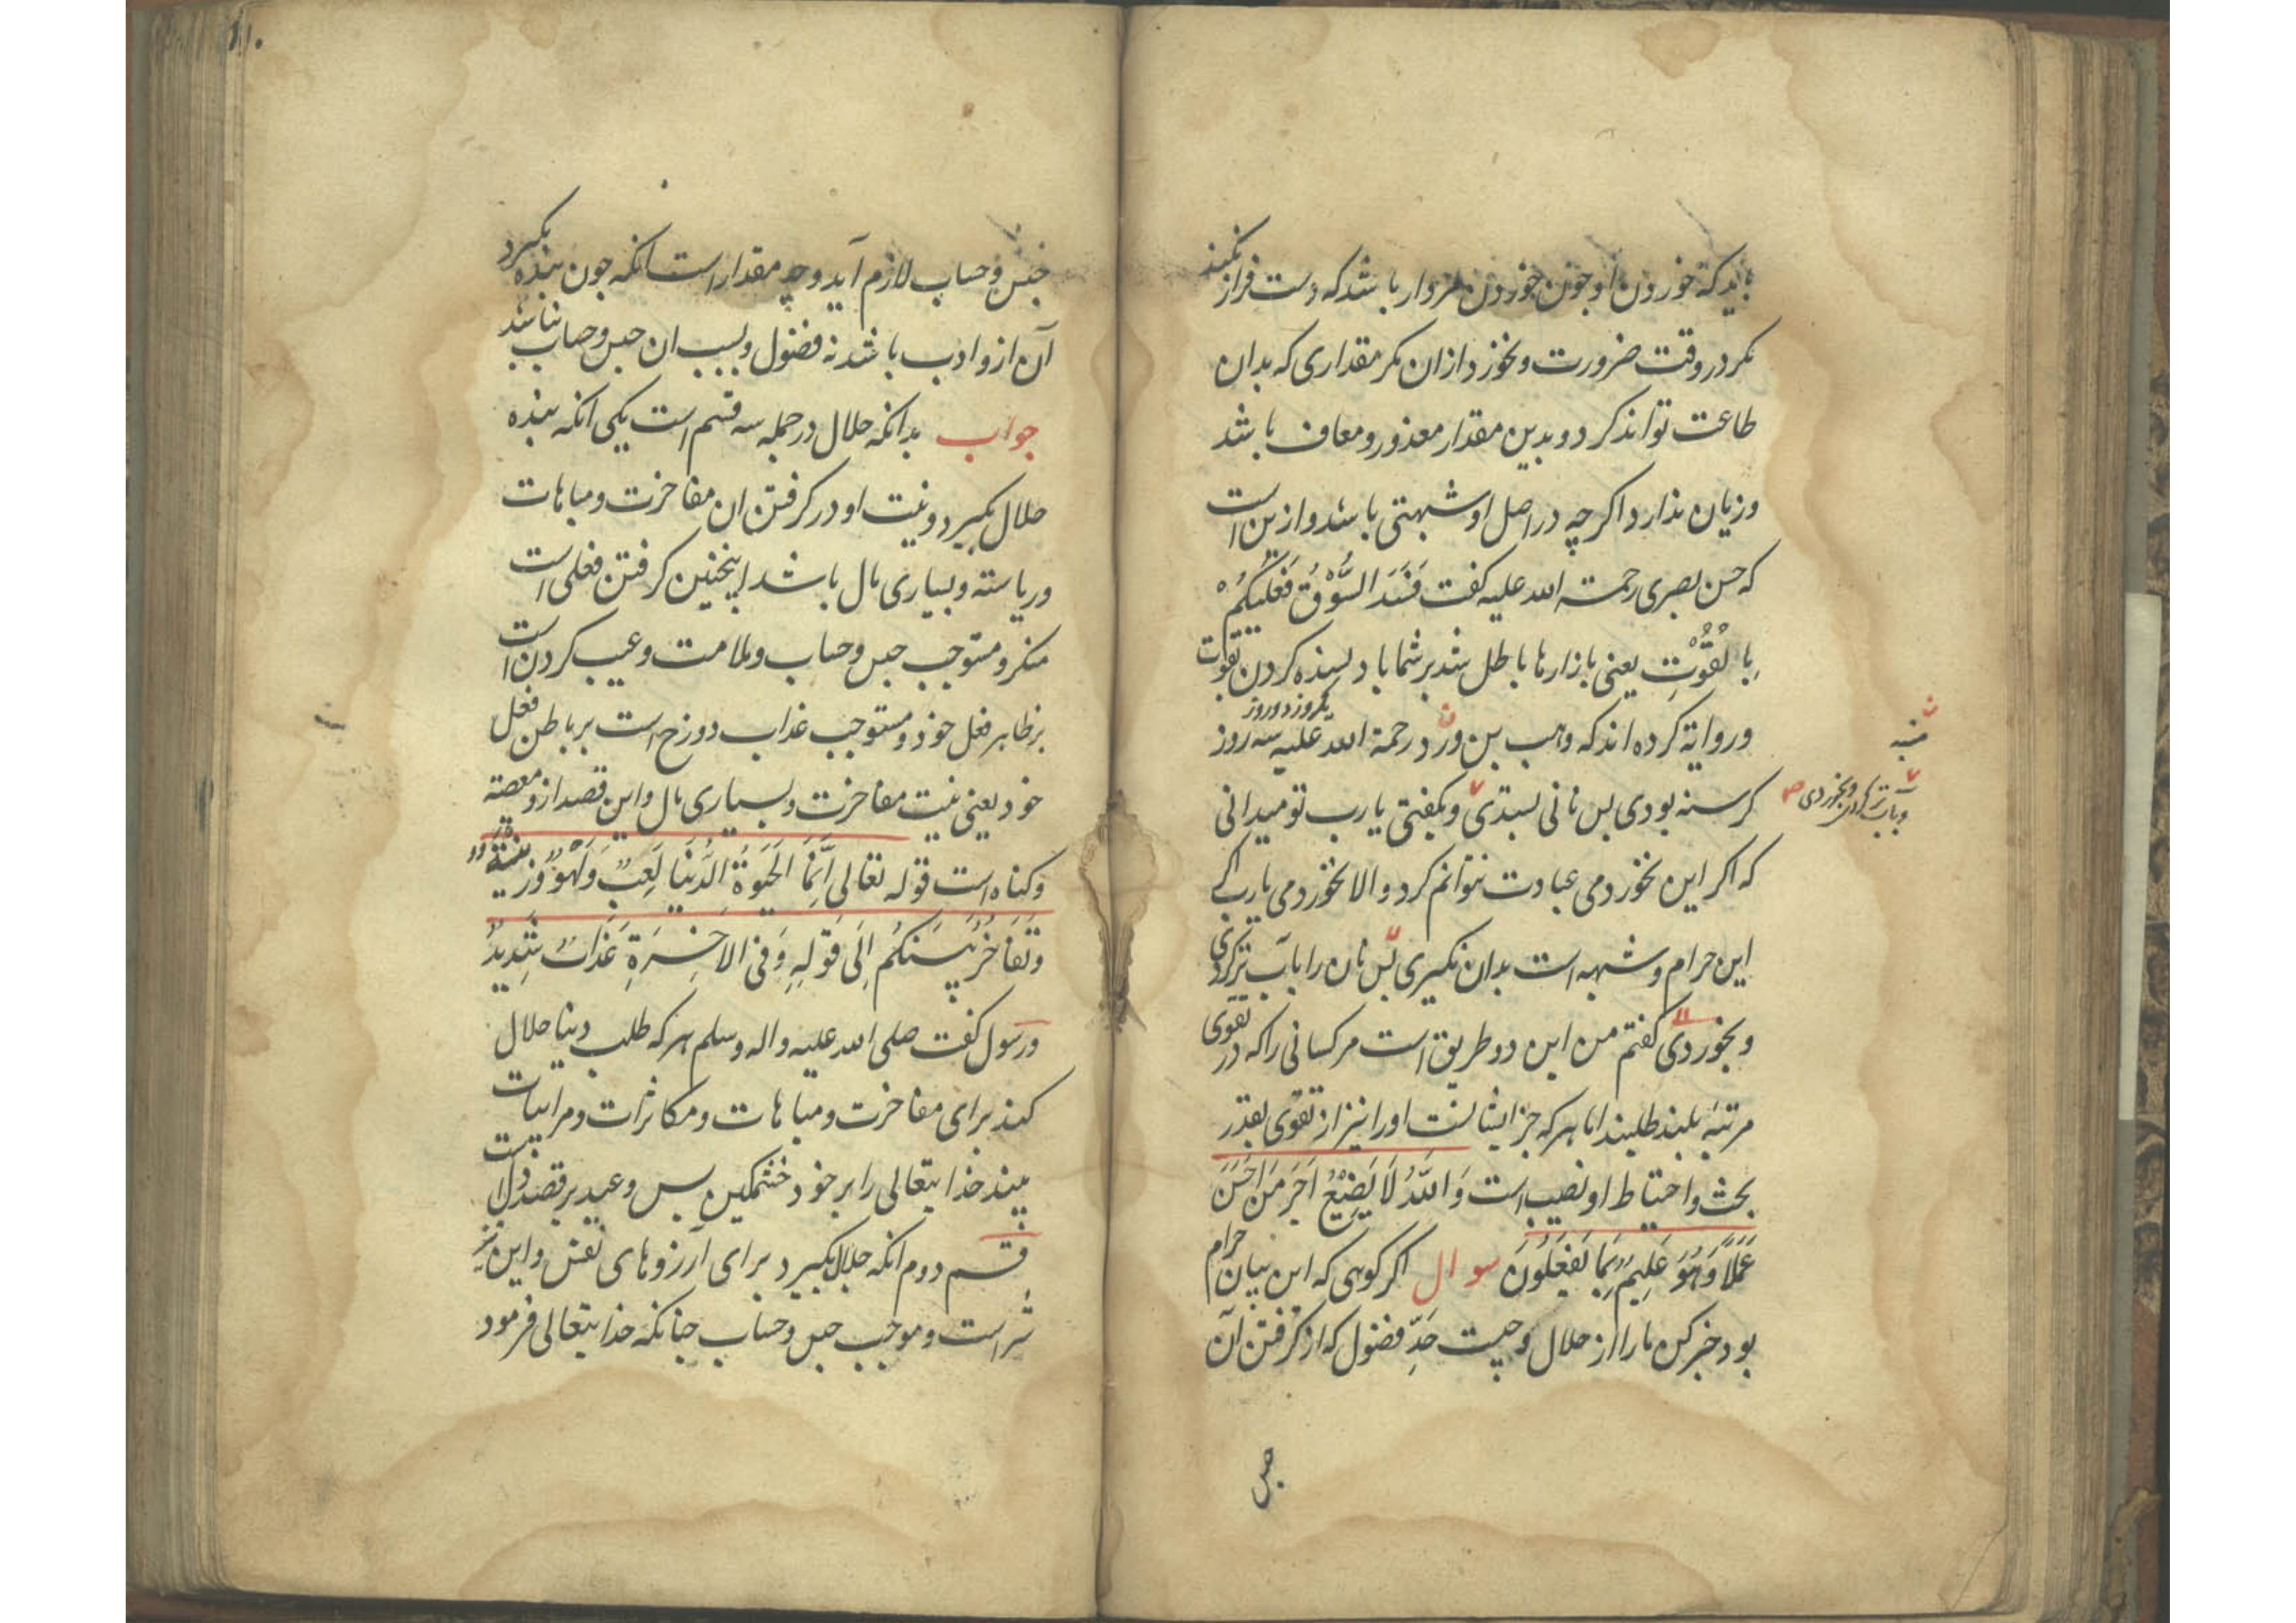 باید که خوردن او چون خوردن مردار باشد که دست فراز نکند
مکر در وقت ضرورت و نخورد ازان مکر مقداری که بدان
طاعت تواند کرد و بدین مقدار معذور و معاف باشد
و زیان ندارد اکر چه در اصل او شبهتی باشد و ازین است
که حسن بصری رحمة الله علیه کفت فَسَدَ السُّوْقُ فَعَلَیْکُمْ
بِالْقُوْتِ یعنی بازارها باطل شد بر شما باد بسنده کردن بقوت
و روایة کرده اند که وهب بن ورد رحمة الله علیه یکروز دو روز سه روز
کرسنه بودی پس نانی بستدی و بکفتی یا رب تو میدانی
که اکر این نخوردمی عبادت نتوانم کرد و الا نخوردمی یا رب اکر
این حرام و شبهه است بدان نکیری پس نان را بآب تر کردی
و بخوردی کفتم من این دو طریق است مر کسانی را که در تقوی
مرتبه بلند طلبند اما هر که جز ایشانست او را نیز از تقوی بقدر
بحث و احتیاط او نصیب است وَ اللّٰهُ لَا یُضِیْعُ اَجْرَ مَنْ اَحْسَنَ
عَمَلًا وَهُوَ عَلِیْمٌ بِمَا تَفْعَلُوْنَ سوال اکر کویی که این بیان حرام
بود خبر کن ما را از حلال و چیست حَدِّ فضول که از کرفتن آن
منبه
و بآب تر کردی و بخوردی
حبس
۱۱۰
حبس و حساب لازم آید و چه مقدار است انکه چون بنده بکیرد
آن ازو ادب باشد نه فضول و بسبب ان حبس و حساب نباشد
جواب بدانکه حلال در جمله سه قسم است یکی انکه بنده
حلال بکیرد و نیت او در کرفتن ان مفاخرت و مباهات
و ریاسته و بسیاری مال باشد اینچنین کرفتن فعلی است
منکر و مستوجب حبس و حساب و ملامت و عیب کردن است
بر ظاهر فعل خود و مستوجب عذاب دوزخ است بر باطن فعل
خود یعنی نیت مفاخرت و بسیاری مال و این قصد ازو معصیة
و کناه است قوله تعالی اَنَّمَا الْحَیٰوةُ الدُّنْیَا لَعِبٌ وَلَهْوٌ وَّزِیْنَةٌ
وَتَفَاخُرٌ بَیْنَکُمْ اِلٰی قَوْلِهِ وَفِی الْاٰخِرَةِ عَذَابٌ شَدِیْدٌ
و رسول کفت صلی الله علیه و اله و سلم هر که طلب دنیا حلال
کند برای مفاخرت و مباهات و مکاثرات و مرائیات
بیند خدایتعالی را بر خود خشمکین پس وعید بر قصد دل است
قسم دوم انکه حلال بکیرد برای آرزوهای نفس و این نیز
شر است و موجب حبس و حساب چنانکه خدایتعالی فرمود